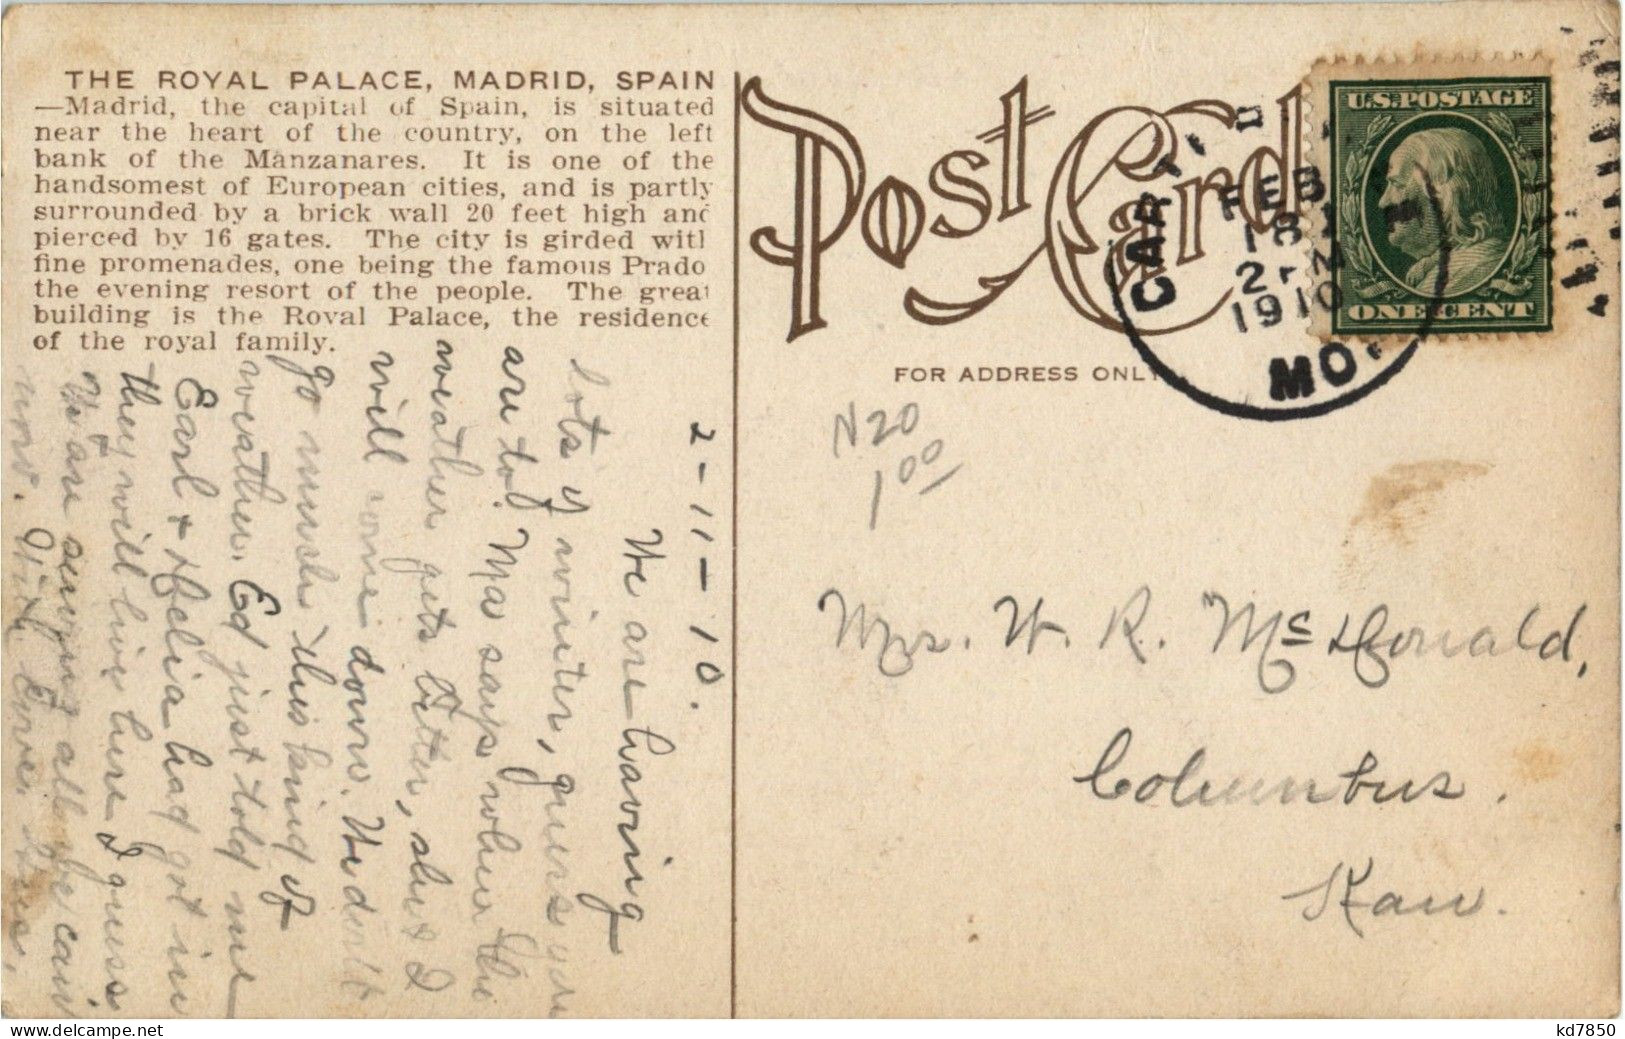 THE ROYAL PALACE, MADRID, SPAIN
—Madrid, the capital of Spain, is situated
near the heart of the country, on the left
bank of the Manzanares. It is one of the
handsomest of European cities, and is partly
surrounded by a brick wall 20 feet high and
pierced by 16 gates. The city is girded with
fine promenades, one being the famous Prado
the evening resort of the people. The great
building is the Royal Palace, the residence
of the royal family.
2-11-10.
We are having
lots of winter, guess you
are to. Ma says when the
weather gets better, she & I
will come down. We don't
go much this kind of
weather. Ed just told me
Earl & Helia had got in
they will live here I guess
We are sewing all we can
now. With Love
Post Card
FOR ADDRESS ONLY
N20
1 00
U.S. POSTAGE
ONE CENT
CART
FEB
1910
MO.
Mrs. W. R. McDonald,
Columbus.
Kan.
delcampe.net
kd7850